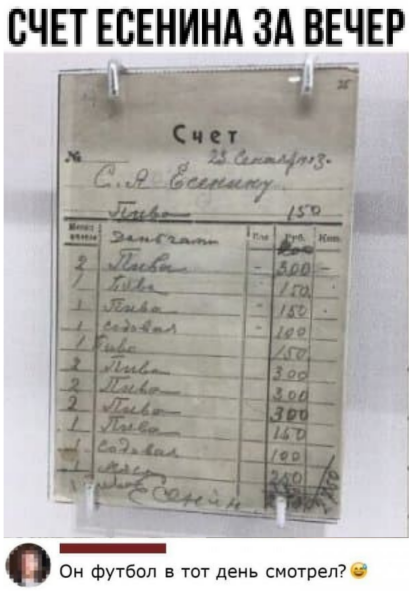 СЧЕТ ЕСЕНИНА ЗА ВЕЧЕР
Счет
№ 23 Сентября
С. А Есенину
Пиво 150
Руб. Коп.
2 Пива - 300 -
1 Пиво 150
1 Пиво - 150
1 Содовая - 100
1 Пиво 150
2 Пива 300
2 Пива 300
2 Пива 300
1 Пиво 150
1 Содовая 100
1 250
Есенин
Он футбол в тот день смотрел?😅